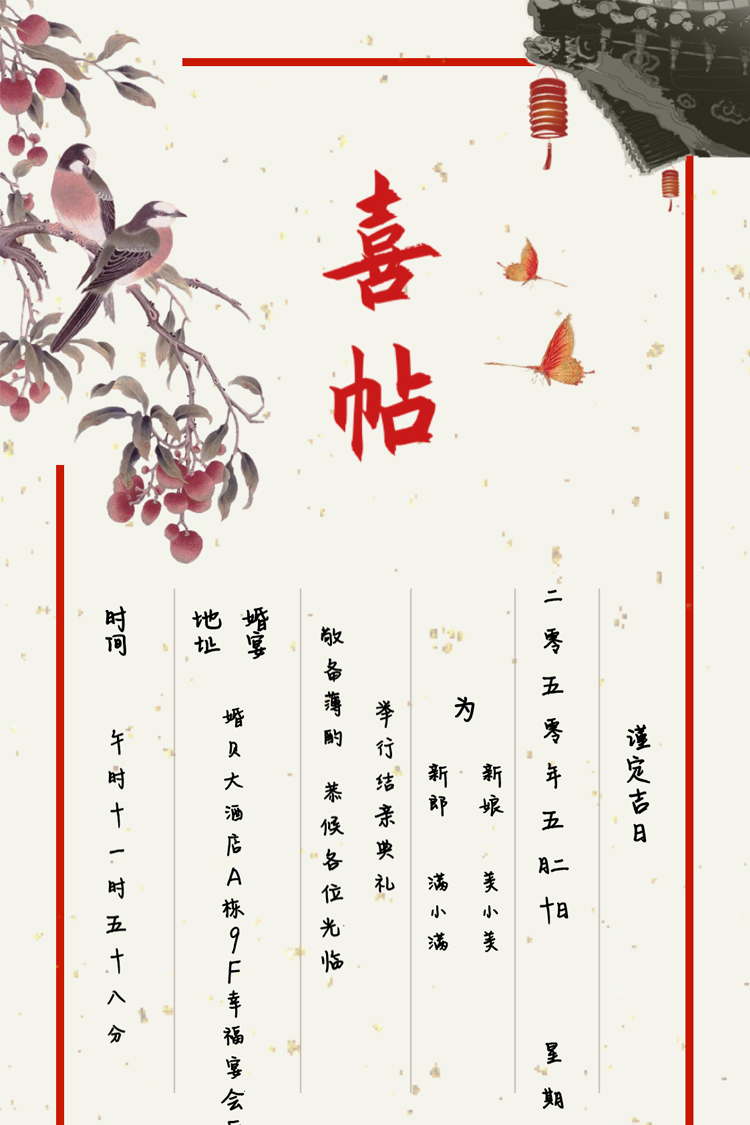 喜帖
谨定吉日
二零五零年五月二十日 星期
为
新娘 美小美
新郎 满小满
举行结亲典礼
敬备薄酌 恭候各位光临
婚宴
地址
婚贝大酒店A栋9F幸福宴会
时间
午时十一时五十八分